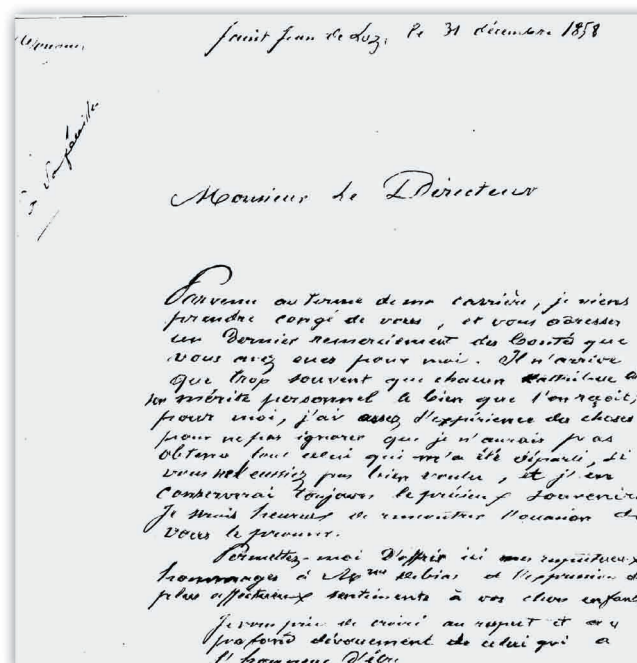 Saint Jean de Luz, le 31 décembre 1858
Monsieur Le Directeur
Parvenu au terme de ma carrière, je viens
prendre congé de vous, et vous adresser
un Dernier remerciement des bontés que
vous avez eues pour moi. Il n'arrive
que trop souvent que chacun attribue à
son mérite personnel le bien que l'on reçoit;
pour moi, j'ai assez d'expérience des choses
pour ne pas ignorer que je n'aurais pas
obtenu tout celui qui m'a été départi, si
vous ne l'eussiez pas bien voulu, et j'en
conserverai toujours le précieux souvenir.
Je serais heureux de rencontrer l'occasion de
vous le prouver.
Permettez-moi D'offrir ici mes respectueux
hommages à Mme et l'expression des
plus affectueux sentiments à vos chers enfants
Je vous prie de croire au respect et au
profond dévouement de celui qui a
l'honneur d'être